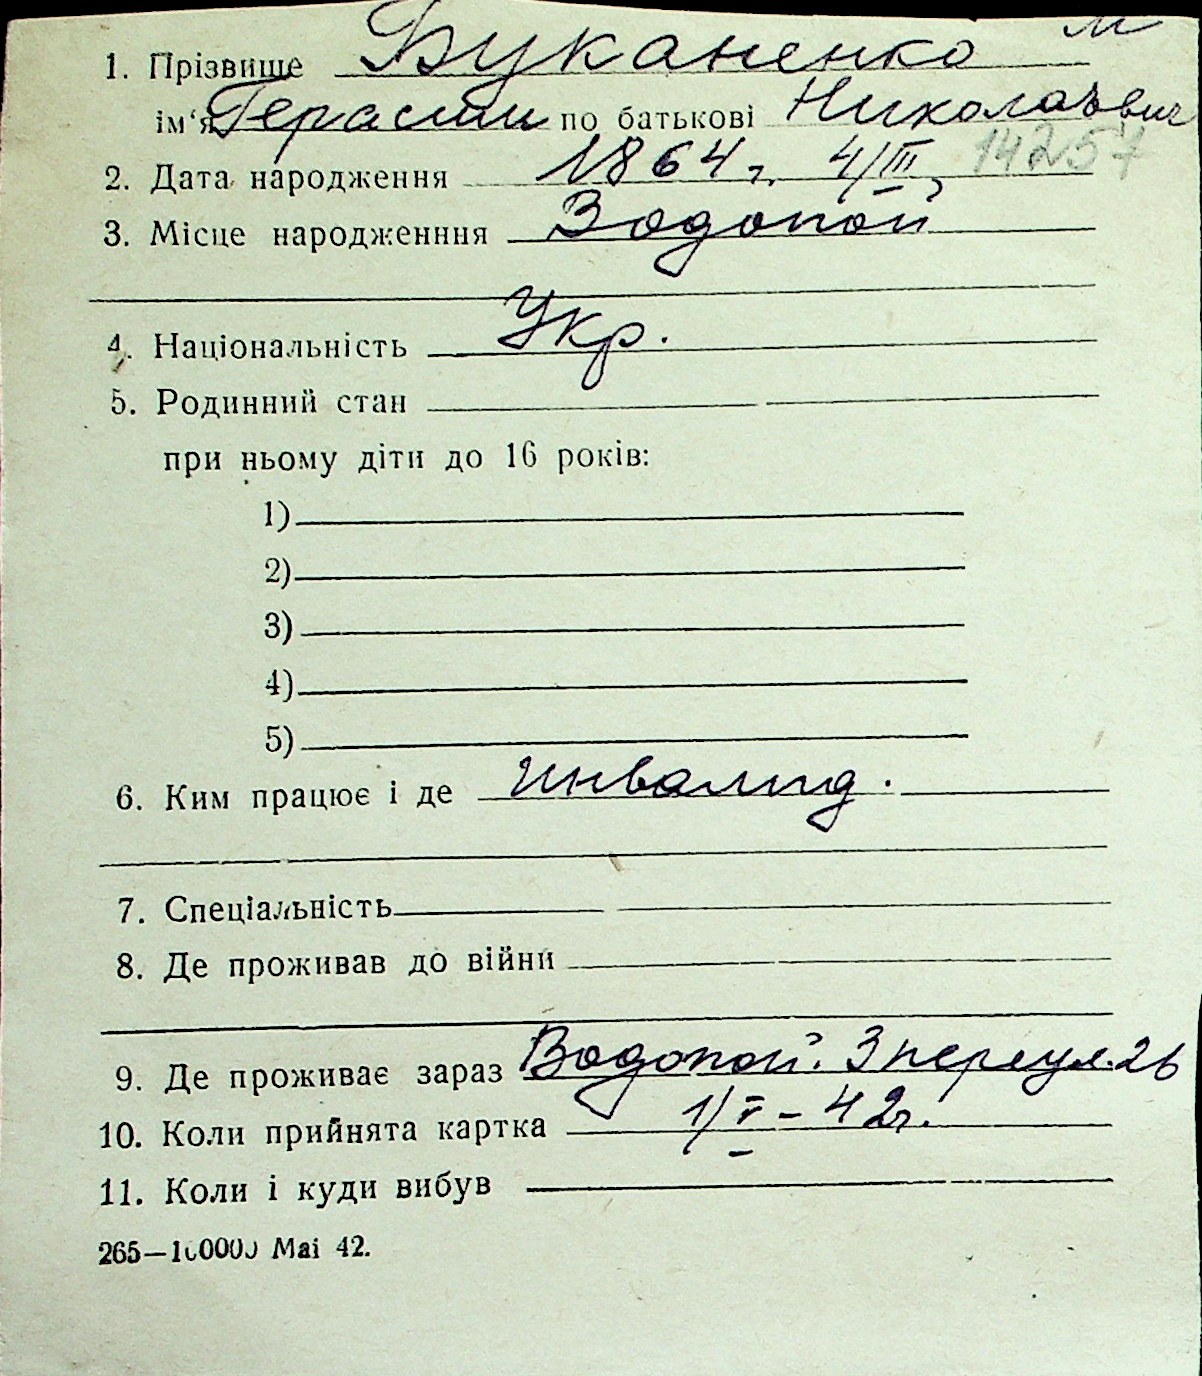 м
1. Прізвище Буканенко
ім‘я Герасим по батькові Николаевич
14257
2. Дата народження 1864 г. 4/III
3. Місце народженння Водопой
4. Національність Укр.
5. Родинний стан
при ньому діти до 16 років:
1)
2)
3)
4)
5)
6. Ким працює і де инвалид.
7. Спеціальність
8. Де проживав до війни
9. Де проживає зараз Водопой. 3 переул. 26
10. Коли прийнята картка 1/V – 42г.
11. Коли і куди вибув
265—10000 Mai 42.